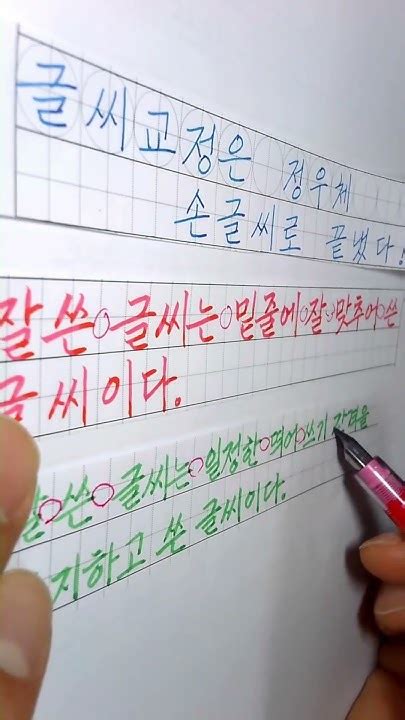 글씨교정은 정우체
손글씨로 끝냈다!
잘 쓴 글씨는 밑줄에 잘 맞추어 쓴
글씨이다.
잘 쓴 글씨는 일정한 띄어쓰기 간격을
지하고 쓴 글씨이다.